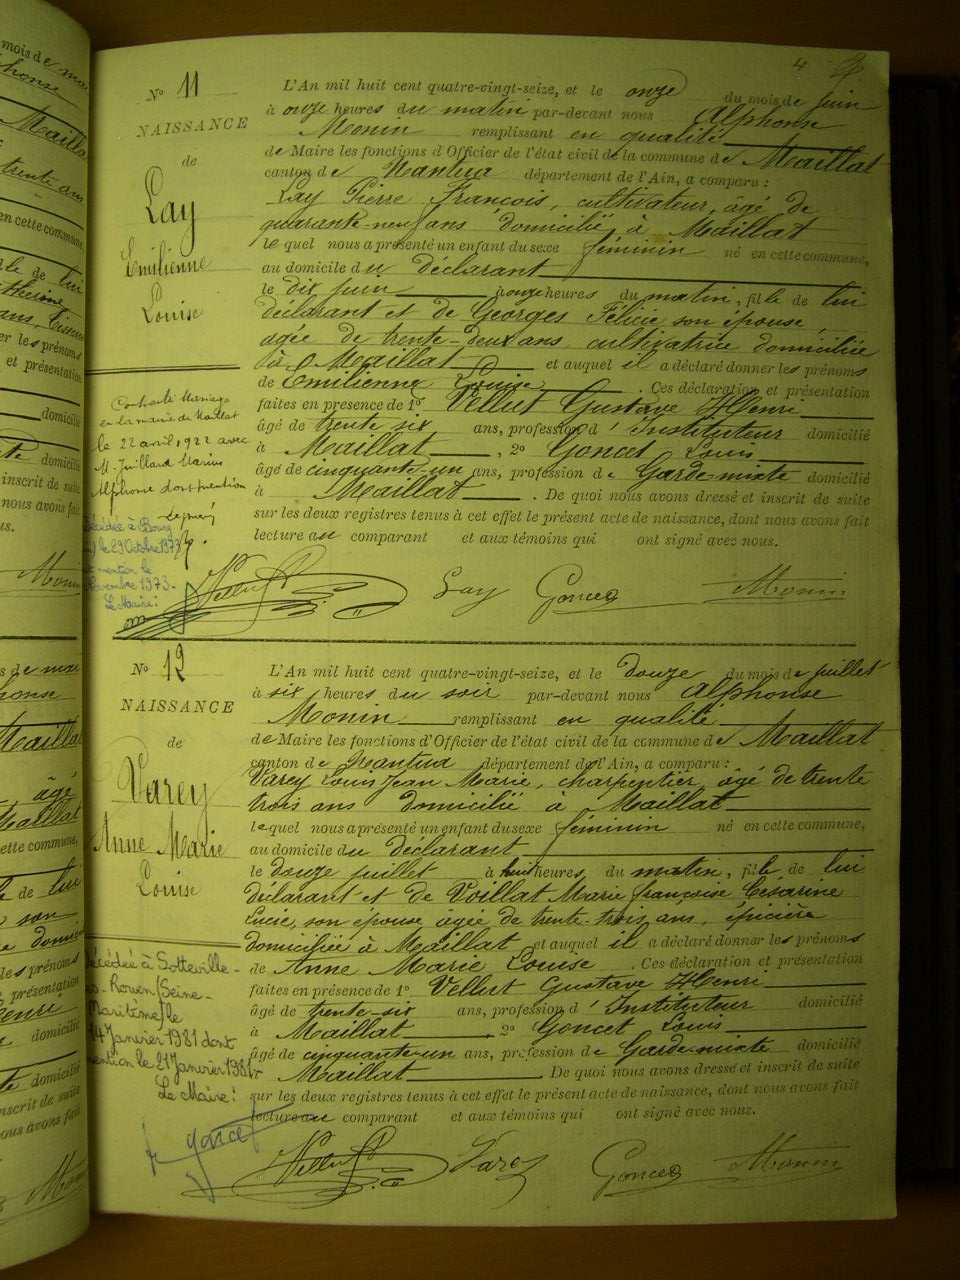 4
N° 11
NAISSANCE
de
Lay
Emilienne
Louise
L'An mil huit cent quatre-vingt-seize, et le onze du mois de juin
à onze heures du matin par-devant nous Alphonse
Monin remplissant en qualité
de Maire les fonctions d'Officier de l'état civil de la commune de Maillat
canton de Nantua département de l'Ain, a comparu :
Lay Pierre François, cultivateur, âgé de
quarante-neuf ans domicilié à Maillat
lequel nous a présenté un enfant du sexe féminin né en cette commune,
au domicile du déclarant
le dix juin à onze heures du matin, fille de lui
déclarant et de Georges Félicie son épouse,
agée de trente-deux ans cultivatrice domiciliée
à Maillat et auquel il a déclaré donner les prénoms
de Emilienne Louise. Ces déclaration et présentation
faites en présence de 1° Vellut Gustave Henri
âgé de trente six ans, profession d'Instituteur domicilié
à Maillat, 2° Goncet Louis
âgé de cinquante-un ans, profession de Garde-mixte domicilié
à Maillat. De quoi nous avons dressé et inscrit de suite
sur les deux registres tenus à cet effet le présent acte de naissance, dont nous avons fait
lecture au comparant et aux témoins qui ont signé avec nous.
Contracté Mariage
en la mairie de Maillat
le 22 avril 1922 avec
M. Juillard Marius
Alphonse dont mention
Décédée à Bourg
le 29 Octobre 1973
mention le
Novembre 1973.
Le Maire :
Vellut Lay Goncet Monin
N° 12
NAISSANCE
de
Varey
Anne Marie
Louise
L'An mil huit cent quatre-vingt-seize, et le douze du mois de juillet
à six heures du soir par-devant nous Alphonse
Monin remplissant en qualité
de Maire les fonctions d'Officier de l'état civil de la commune de Maillat
canton de Nantua département de l'Ain, a comparu :
Varey Louis Jean Marie, charpentier, âgé de trente
trois ans domicilié à Maillat
lequel nous a présenté un enfant du sexe féminin né en cette commune,
au domicile du déclarant
le douze juillet à huit heures, du matin, fille de lui
déclarant et de Voillat Marie françoise Césarine
Lucie, son épouse âgée de trente-trois ans, épicière
domiciliée à Maillat et auquel il a déclaré donner les prénoms
de Anne Marie Louise. Ces déclaration et présentation
faites en présence de 1° Vellut Gustave Henri
âgé de trente-six ans, profession d'Instituteur domicilié
à Maillat, 2° Goncet Louis
âgé de cinquante-un ans, profession de Garde-mixte domicilié
à Maillat. De quoi nous avons dressé et inscrit de suite
sur les deux registres tenus à cet effet le présent acte de naissance, dont nous avons fait
lecture au comparant et aux témoins qui ont signé avec nous.
Décédée à Sotteville-
Rouen (Seine-
Maritime) le
14 Janvier 1981 dont
mention le 21 Janvier 1981
Le Maire :
Vellut Varey Goncet Monin